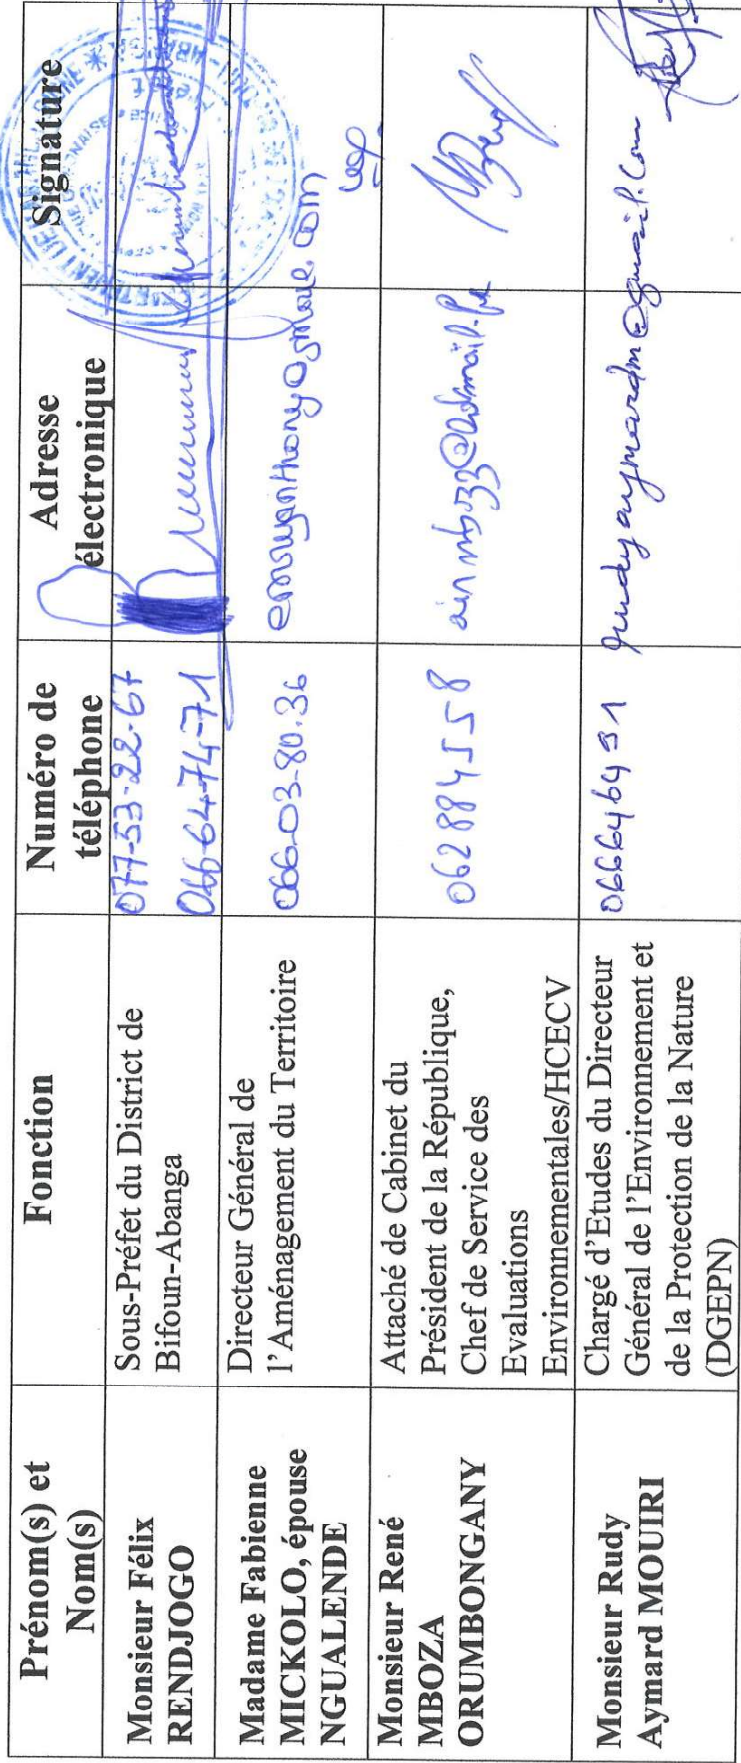 Prénom(s) et
Nom(s)
Fonction
Numéro de
téléphone
Adresse
électronique
Signature
Monsieur Félix
RENDJOGO
Sous-Préfet du District de
Bifoun-Abanga
077-53-22-67
066-64-74-71
Madame Fabienne
MICKOLO, épouse
NGUALENDE
Directeur Général de
l'Aménagement du Territoire
066-03-80.36
Monsieur René
MBOZA
ORUMBONGANY
Attaché de Cabinet du
Président de la République,
Chef de Service des
Evaluations
Environnementales/HCECV
062884558
Monsieur Rudy
Aymard MOUIRI
Chargé d'Etudes du Directeur
Général de l'Environnement et
de la Protection de la Nature
(DGEPN)
066646491
rudyaymardm@gmail.com